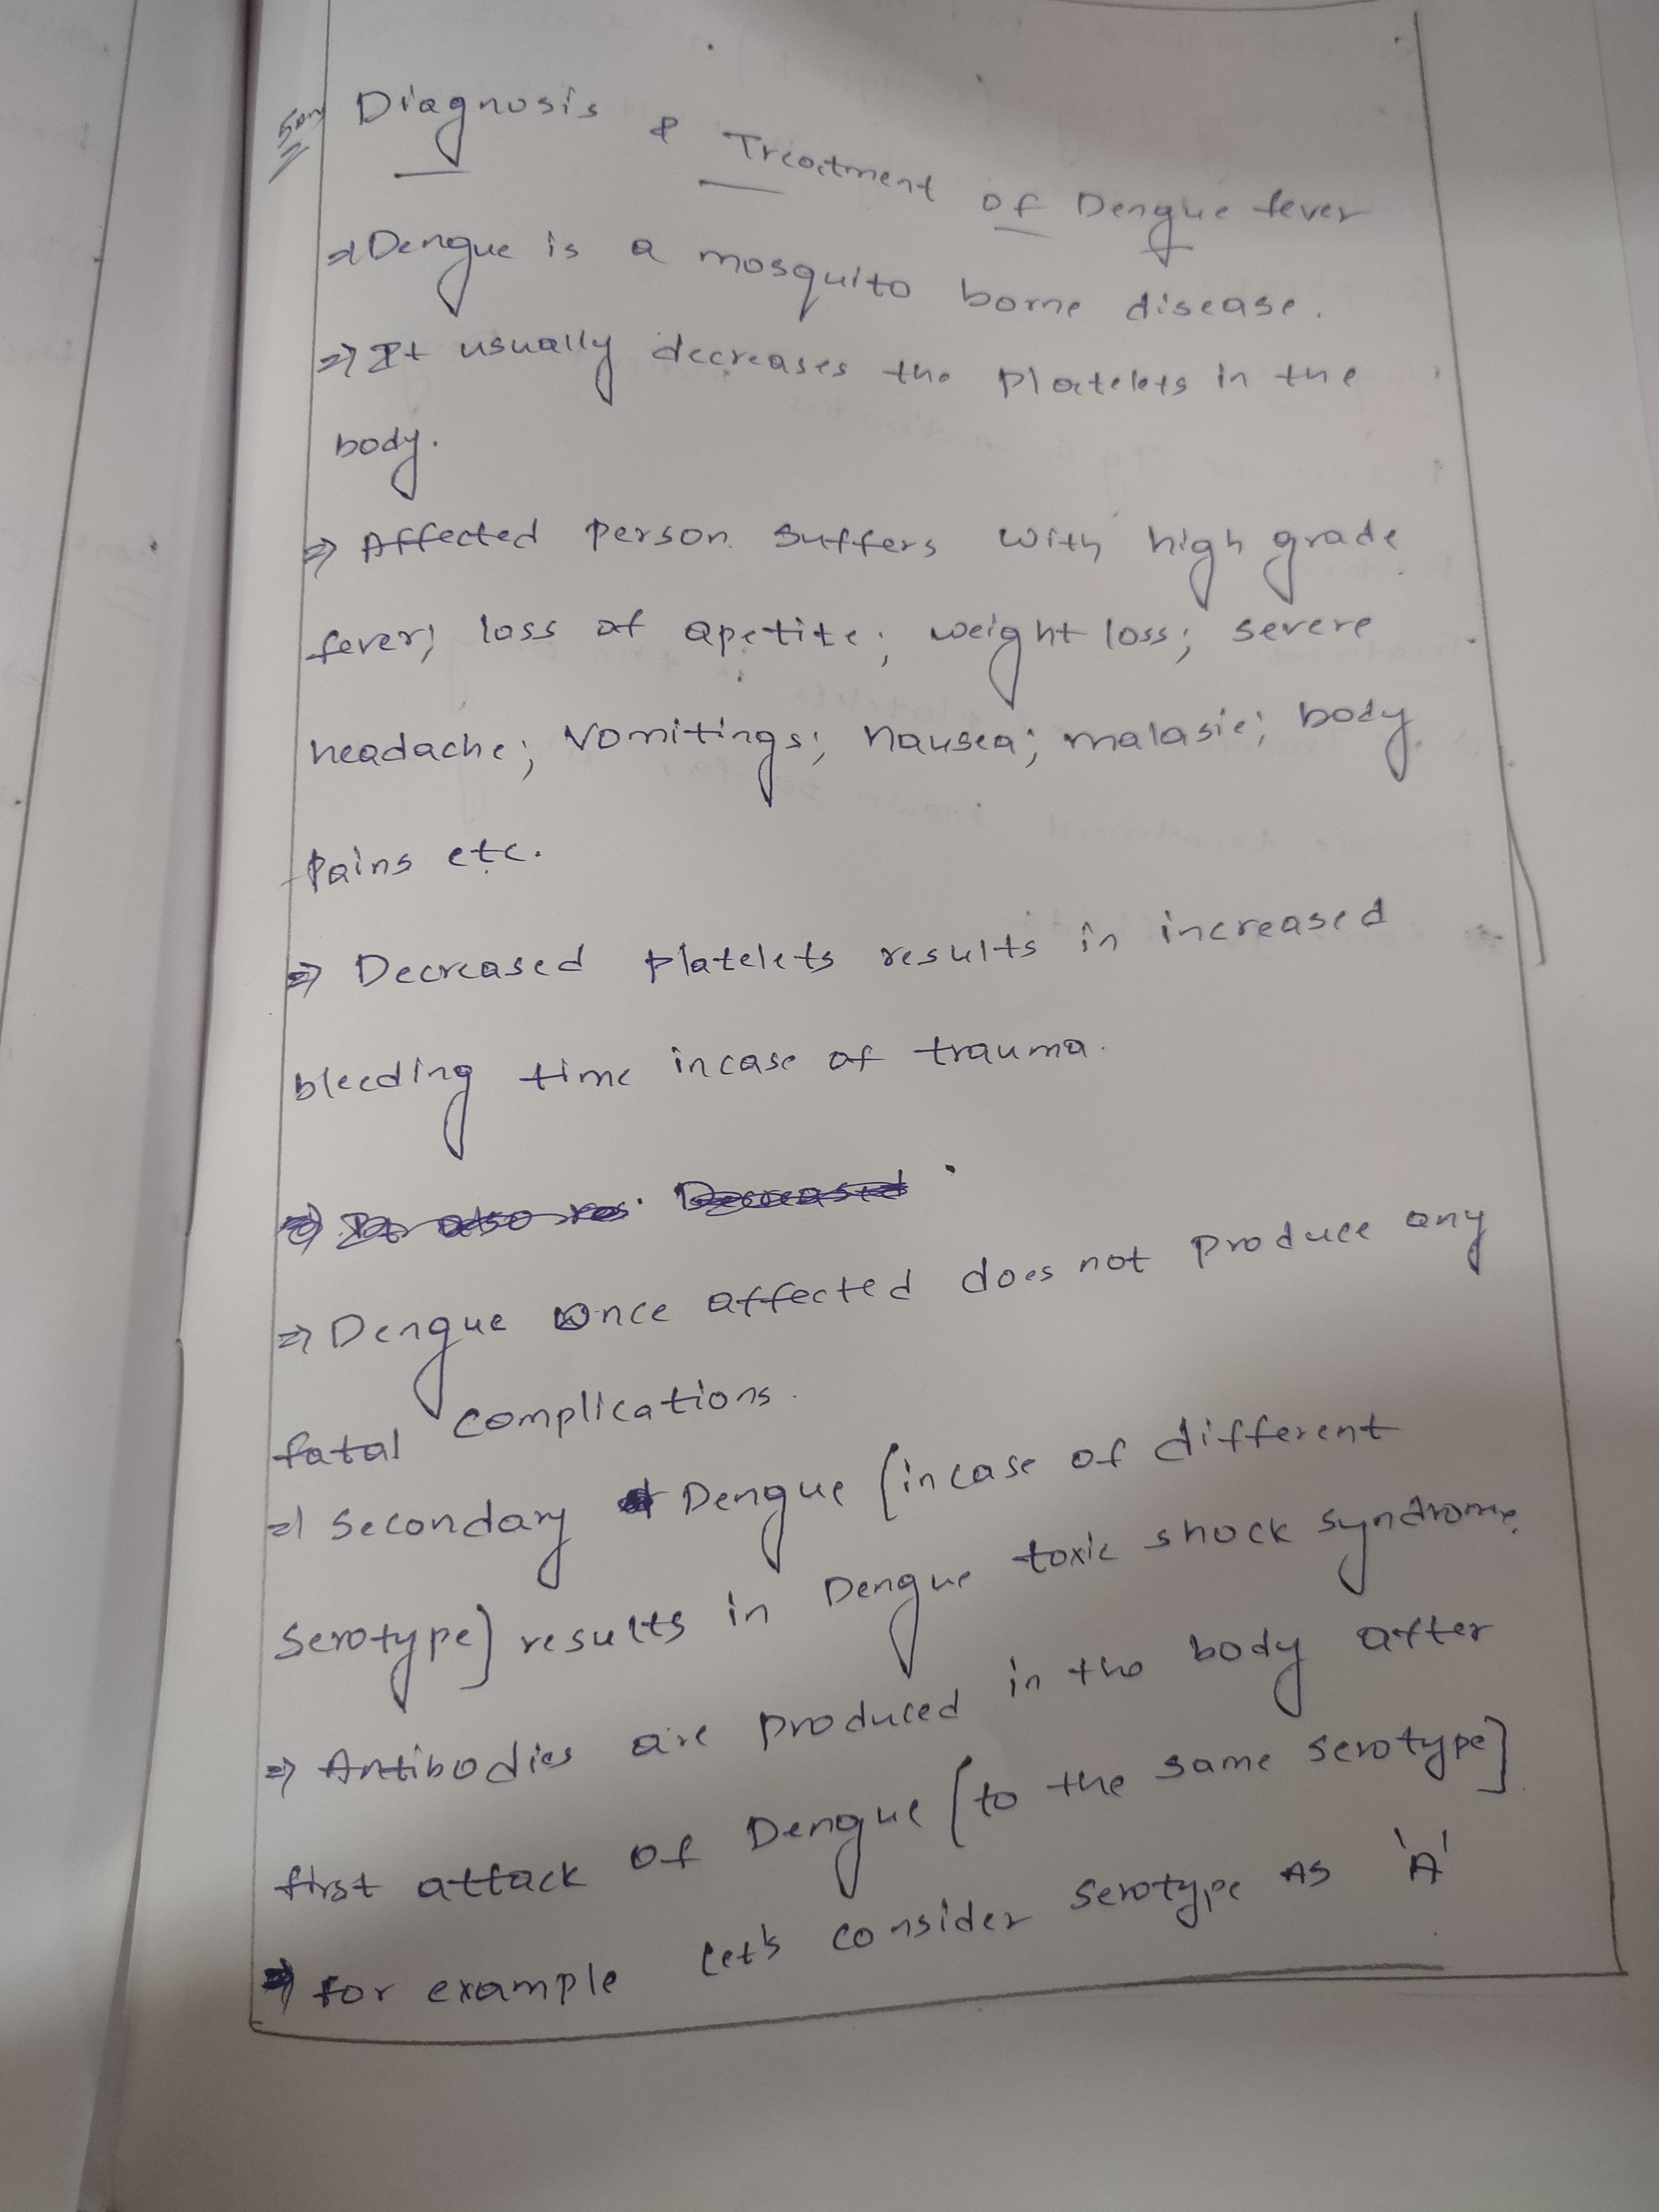 5am
Diagnosis & Treatment of Dengue fever
⇒ Dengue is a mosquito borne disease.
⇒ It usually decreases the platelets in the
body.
⇒ Affected person suffers with high grade
fever; loss of apetite; weight loss; severe
headache; vomitings; nausea; malasie; body
pains etc.
⇒ Decreased platelets results in increased
bleeding time incase of trauma.
⇒ It also res Decreased
⇒ Dengue once affected does not produce any
fatal complications.
⇒ Secondary Dengue [incase of different
serotype] results in Dengue toxic shock syndrome.
⇒ Antibodies are produced in the body after
first attack of Dengue [to the same serotype]
⇒ for example let's consider serotype as 'A'